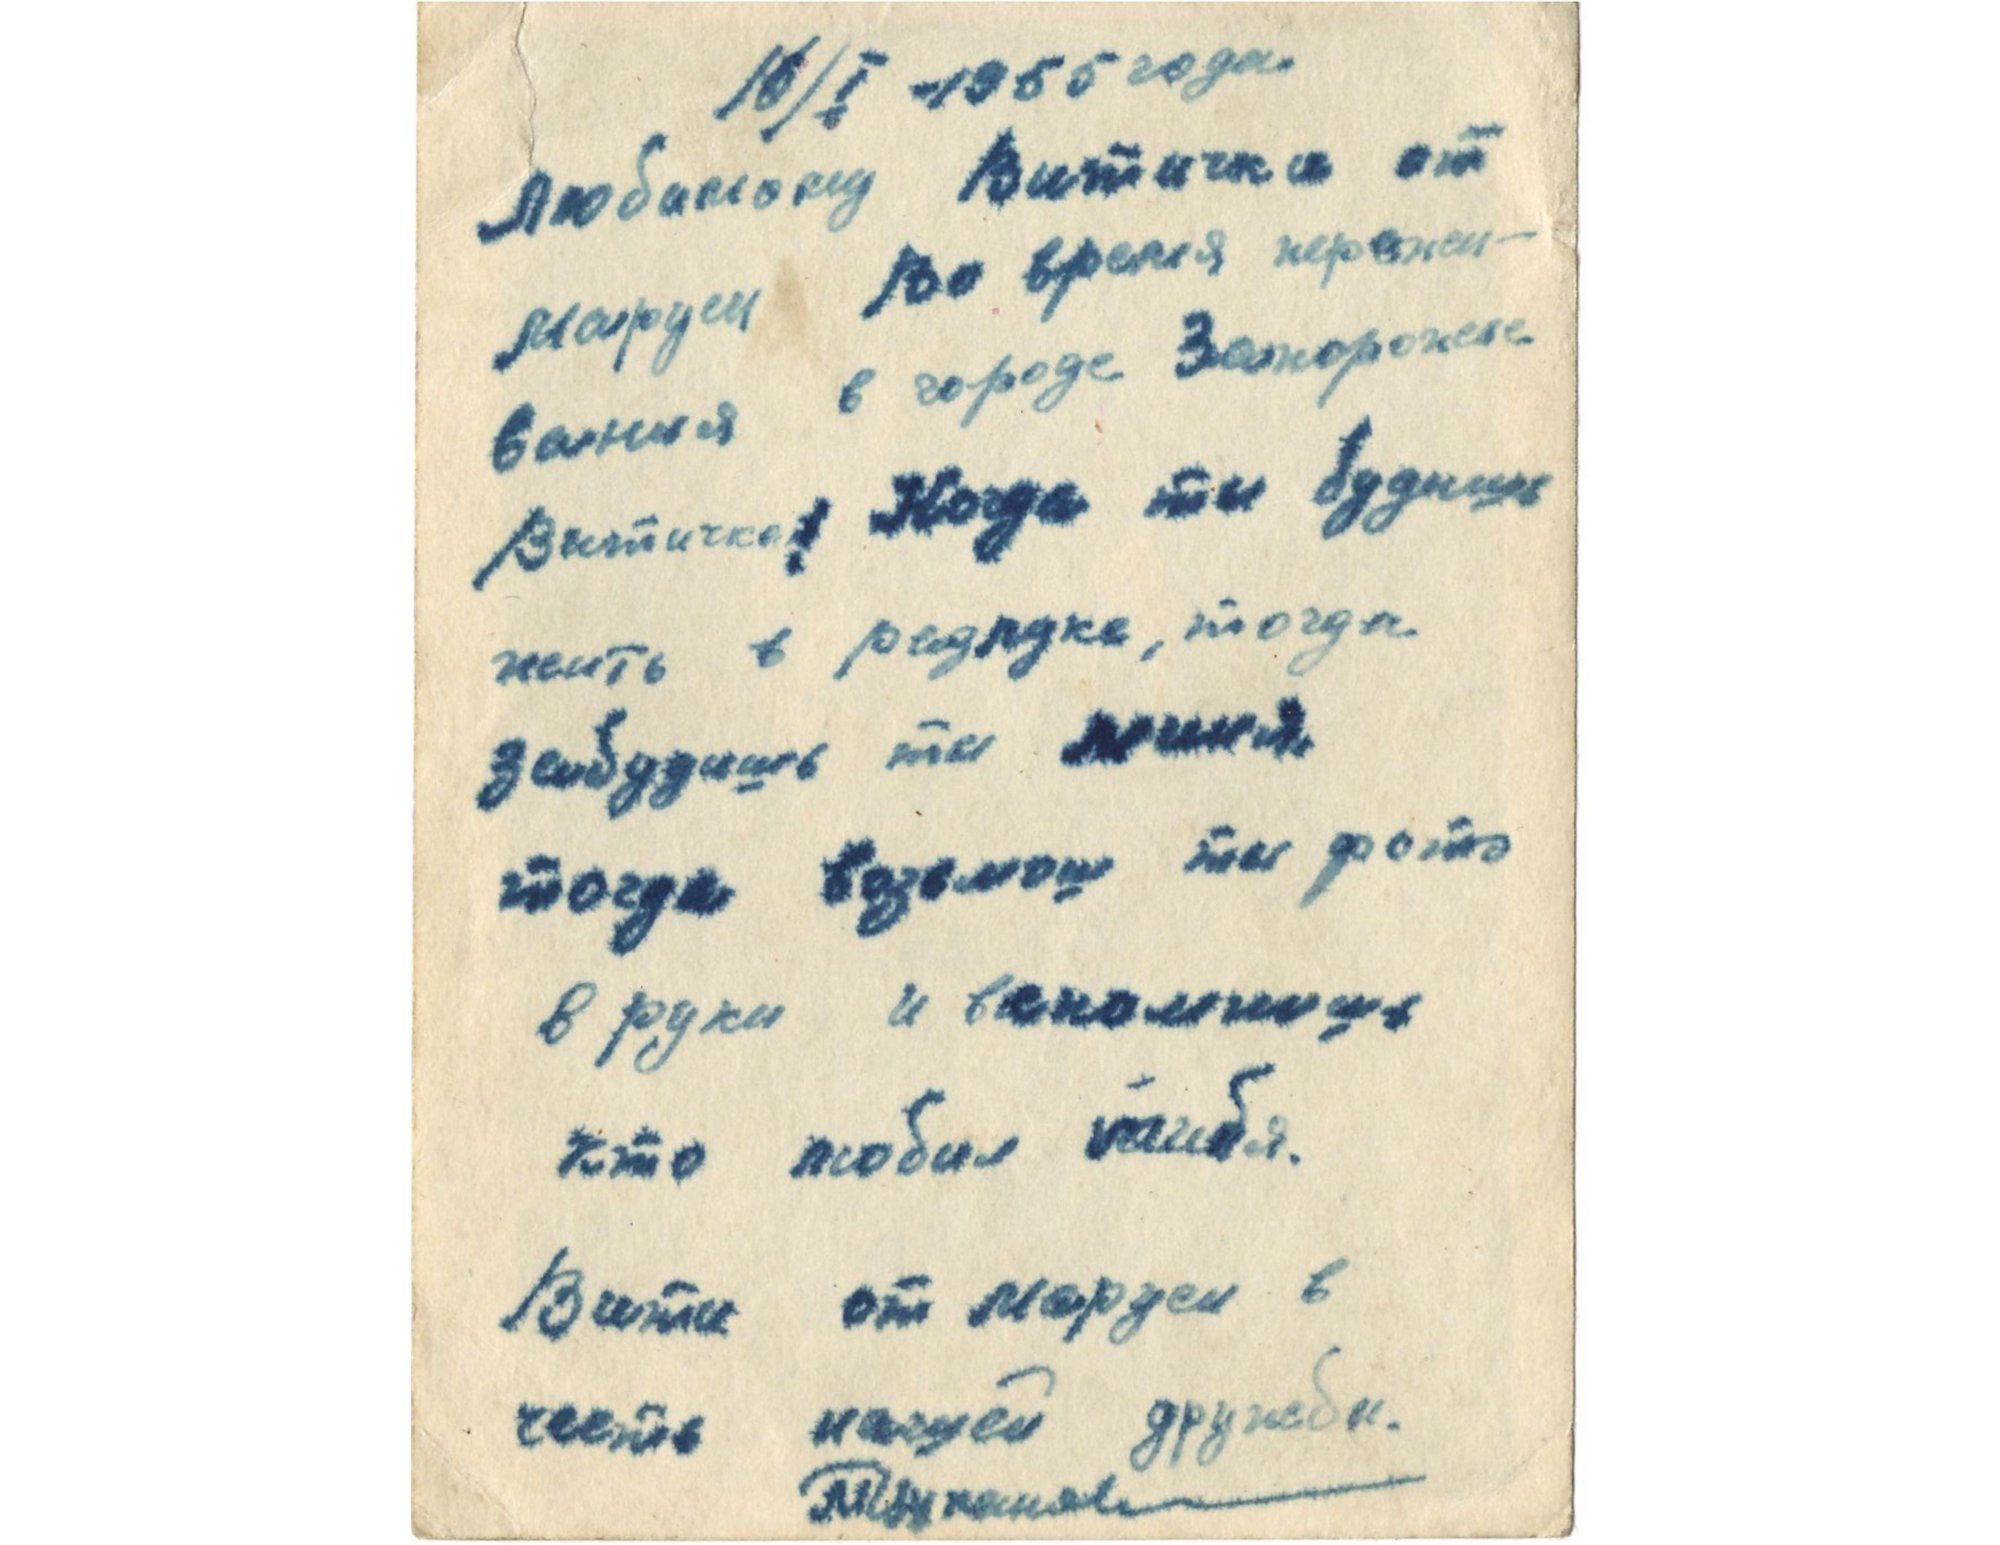 16/I -1955 года.
Любимому Витички от
Маруси Во время пережи-
вания в городе Запорожье
Витичка! Когда ти будишь
жить в радлуке, тогда
забудишь ти миня
тогда возьмош ти фото
в руки и вспомнишь
кто любил тибя.
Вити от Маруси в
честь нашей дружби.